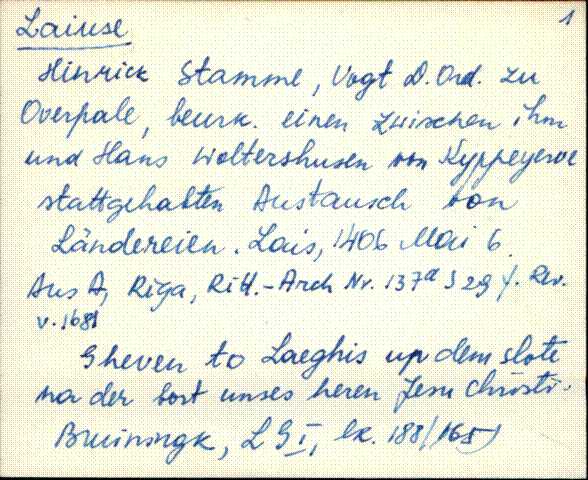 1
Laiuse
Hinrick Stamme, Vogt D. Ord. zu
Overpale, beurk. einen zwischen ihm
und Hans Woltershusen von Kyppeyerve
stattgehabten Austausch von
Ländereien. Lais, 1406 Mai 6.
Aus A, Riga, Ritt.-Arch Nr. 137a S 29 f. Rev.
v. 1681
Gheven to Laeghis up dem slote
na der bort unses heren Jesu Christi.
Bruiningk, L G I, lk. 188/(165)